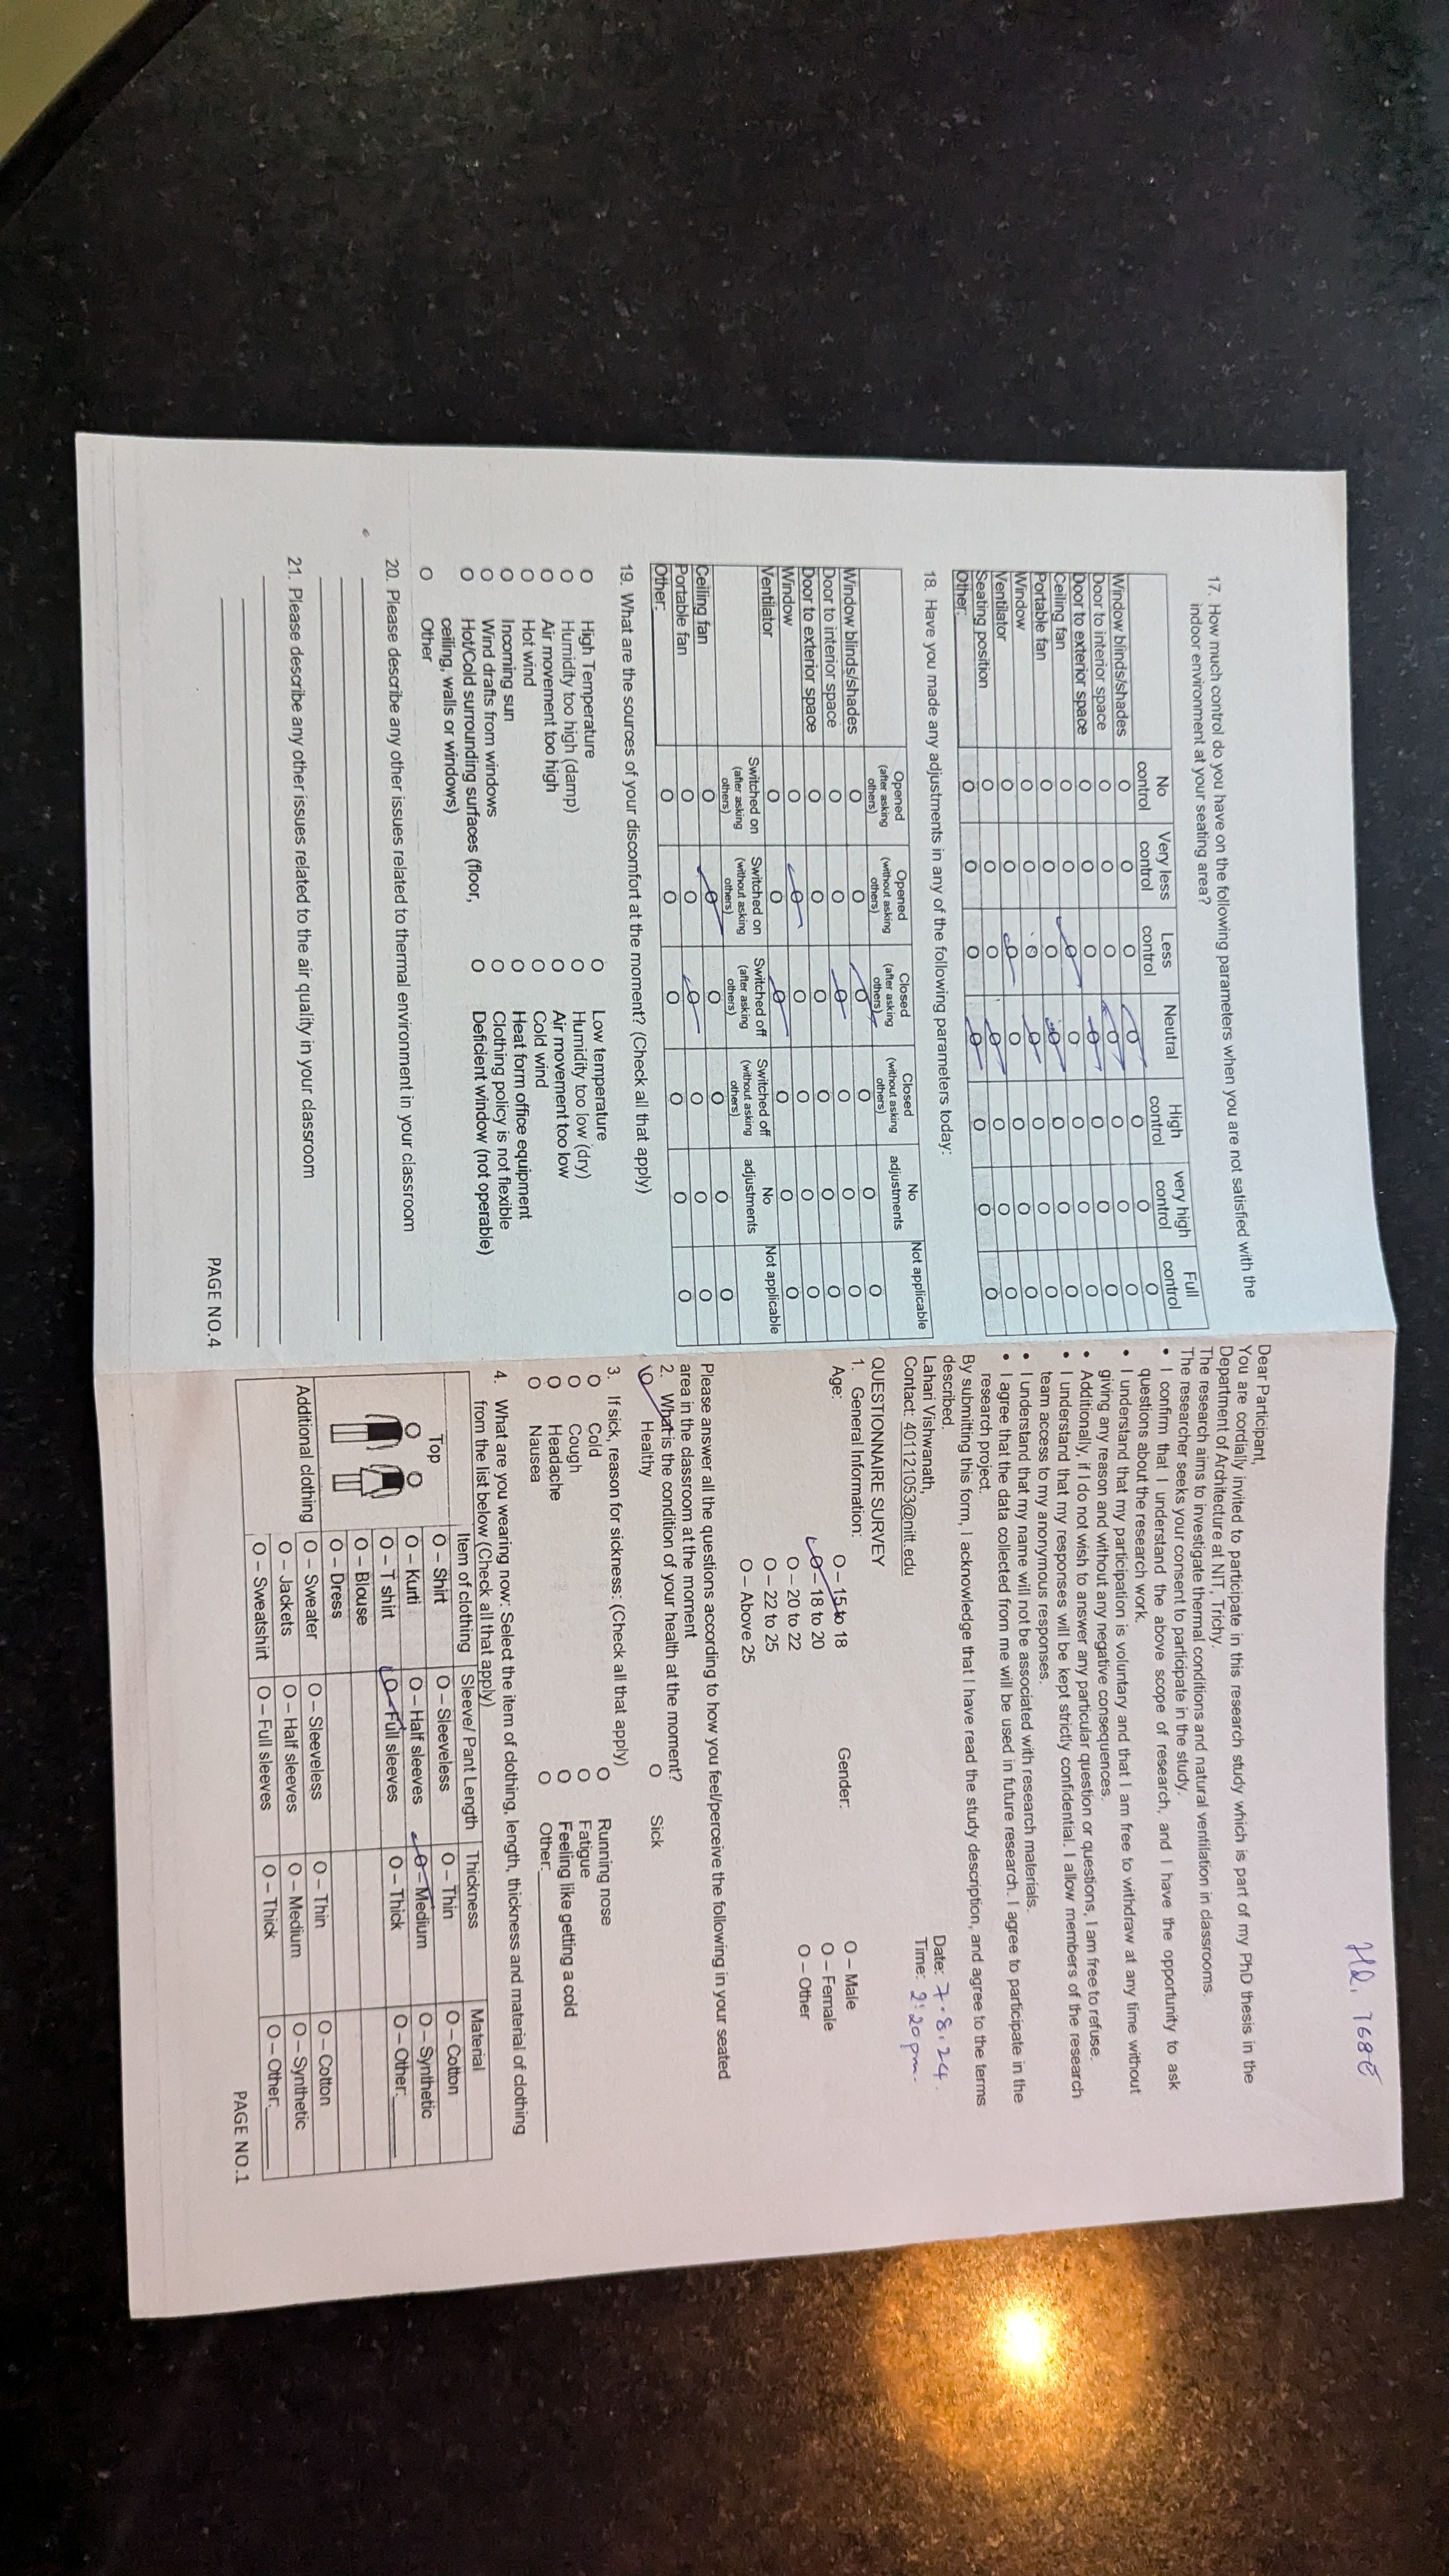 17. How much control do you have on the following parameters when you are not satisfied with the
indoor environment at your seating area?
No control Very less control Less control Neutral High control very high control Full control
Window blinds/shades O O O O O O O
Door to interior space O O O O O O O
Door to exterior space O O O O O O O
Ceiling fan O O O O O O O
Portable fan O O O O O O O
Window O O O O O O O
Ventilator O O O O O O O
Seating position O O O O O O O
Other: O O O O O O O
18. Have you made any adjustments in any of the following parameters today:
Opened (after asking others) Opened (without asking others) Closed (after asking others) Closed (without asking others) No adjustments Not applicable
Window blinds/shades O O O O O O
Door to interior space O O O O O O
Door to exterior space O O O O O O
Window O O O O O O
Ventilator O O O O O O
Switched on (after asking others) Switched on (without asking others) Switched off (after asking others) Switched off (without asking others) No adjustments Not applicable
Ceiling fan O O O O O O
Portable fan O O O O O O
Other: O O O O O O
19. What are the sources of your discomfort at the moment? (Check all that apply)
O High Temperature O Low temperature
O Humidity too high (damp) O Humidity too low (dry)
O Air movement too high O Air movement too low
O Hot wind O Cold wind
O Incoming sun O Heat form office equipment
O Wind drafts from windows O Clothing policy is not flexible
O Hot/Cold surrounding surfaces (floor, O Deficient window (not operable)
ceiling, walls or windows)
O Other
20. Please describe any other issues related to thermal environment in your classroom
21. Please describe any other issues related to the air quality in your classroom
PAGE NO.4
Dear Participant,
You are cordially invited to participate in this research study which is part of my PhD thesis in the
Department of Architecture at NIT, Trichy.
The research aims to investigate thermal conditions and natural ventilation in classrooms.
The researcher seeks your consent to participate in the study.
• I confirm that I understand the above scope of research, and I have the opportunity to ask
questions about the research work.
• I understand that my participation is voluntary and that I am free to withdraw at any time without
giving any reason and without any negative consequences.
• Additionally, if I do not wish to answer any particular question or questions, I am free to refuse.
• I understand that my responses will be kept strictly confidential. I allow members of the research
team access to my anonymous responses.
• I understand that my name will not be associated with research materials.
• I agree that the data collected from me will be used in future research. I agree to participate in the
research project.
By submitting this form, I acknowledge that I have read the study description, and agree to the terms
described.
Lahari Vishwanath,
Contact: 401121053@nitt.edu
Date: 7.8.24.
Time: 2:20pm.
QUESTIONNAIRE SURVEY
1. General Information:
Age: O – 15 to 18 Gender: O – Male
O – 18 to 20 O – Female
O – 20 to 22 O – Other
O – 22 to 25
O – Above 25
Please answer all the questions according to how you feel/perceive the following in your seated
area in the classroom at the moment
2. What is the condition of your health at the moment?
O Healthy O Sick
3. If sick, reason for sickness: (Check all that apply)
O Cold O Running nose
O Cough O Fatigue
O Headache O Feeling like getting a cold
O Nausea O Other:
4. What are you wearing now: Select the item of clothing, length, thickness and material of clothing
from the list below (Check all that apply)
Item of clothing Sleeve/ Pant Length Thickness Material
Top O – Shirt O – Sleeveless O – Thin O – Cotton
O O O – Kurti O – Half sleeves O – Medium O – Synthetic
O – T shirt O – Full sleeves O – Thick O – Other:
O – Blouse
O – Dress
Additional clothing O – Sweater O – Sleeveless O – Thin O – Cotton
O – Jackets O – Half sleeves O – Medium O – Synthetic
O – Sweatshirt O – Full sleeves O – Thick O – Other:
PAGE NO.1